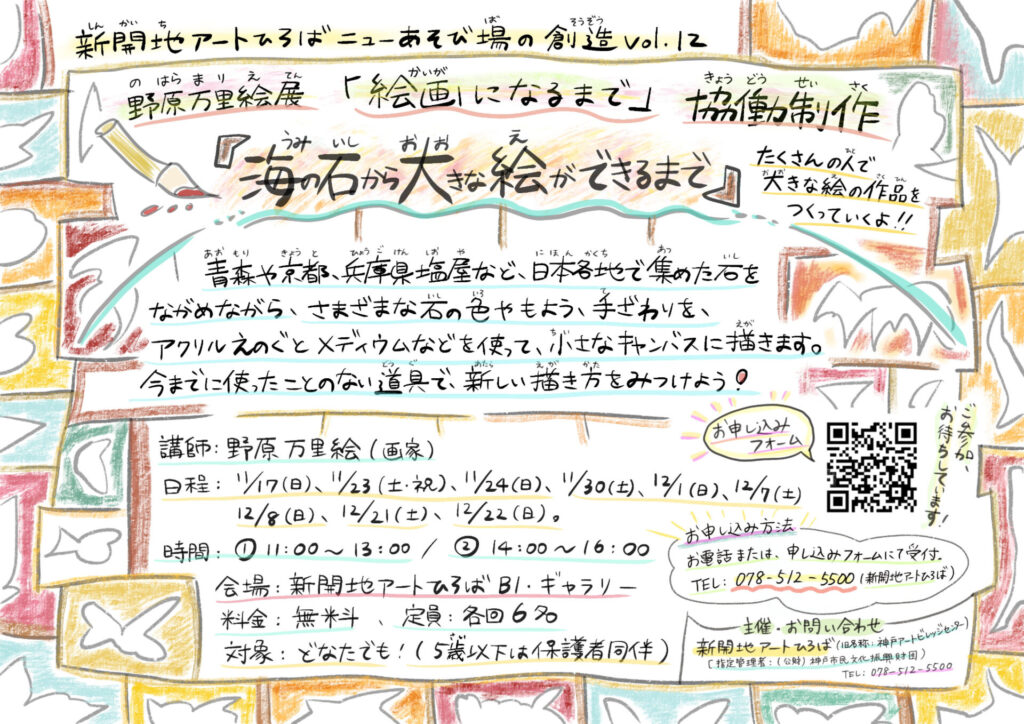 新開地アートひろば ニューあそび場の創造 vol.12
しん かい ち ば そうぞう
野原万里絵展 「絵画」になるまで」 協働制作
の はら ま り え てん かいが きょう どう せい さく
『海の石から大きな絵ができるまで』
うみ いし おお え
たくさんの人で
大きな絵の作品を
つくっていくよ!!
青森や京都、兵庫県塩屋など、日本各地で集めた石を
あお もり きょう と ひょうご けん しお や にほん かくち あつ いし
ながめながら、さまざまな石の色やもよう、手ざわりを、
アクリルえのぐとメディウムなどを使って、小さなキャンバスに描きます。
今までに使ったことのない道具で、新しい描き方をみつけよう!
講師:野原万里絵(画家)
日程:11/17(日)、11/23(土・祝)、11/24(日)、11/30(土)、12/1(日)、12/7(土)
12/8(日)、12/21(土)、12/22(日)。
時間:①11:00〜13:00 / ②14:00〜16:00
会場:新開地アートひろばB1・ギャラリー
料金:無料、定員:各回6名
対象:どなたでも!(5歳以下は保護者同伴)
お申し込み
フォーム
ご参加、
お待ちしています!
お申し込み方法
お電話または、申し込みフォームにて受付。
TEL:078-512-5500(新開地アートひろば)
主催・お問い合わせ
新開地アートひろば(旧名称:神戸アートビレッジセンター)
[指定管理者:(公財)神戸市民文化振興財団]
TEL:078-512-5500